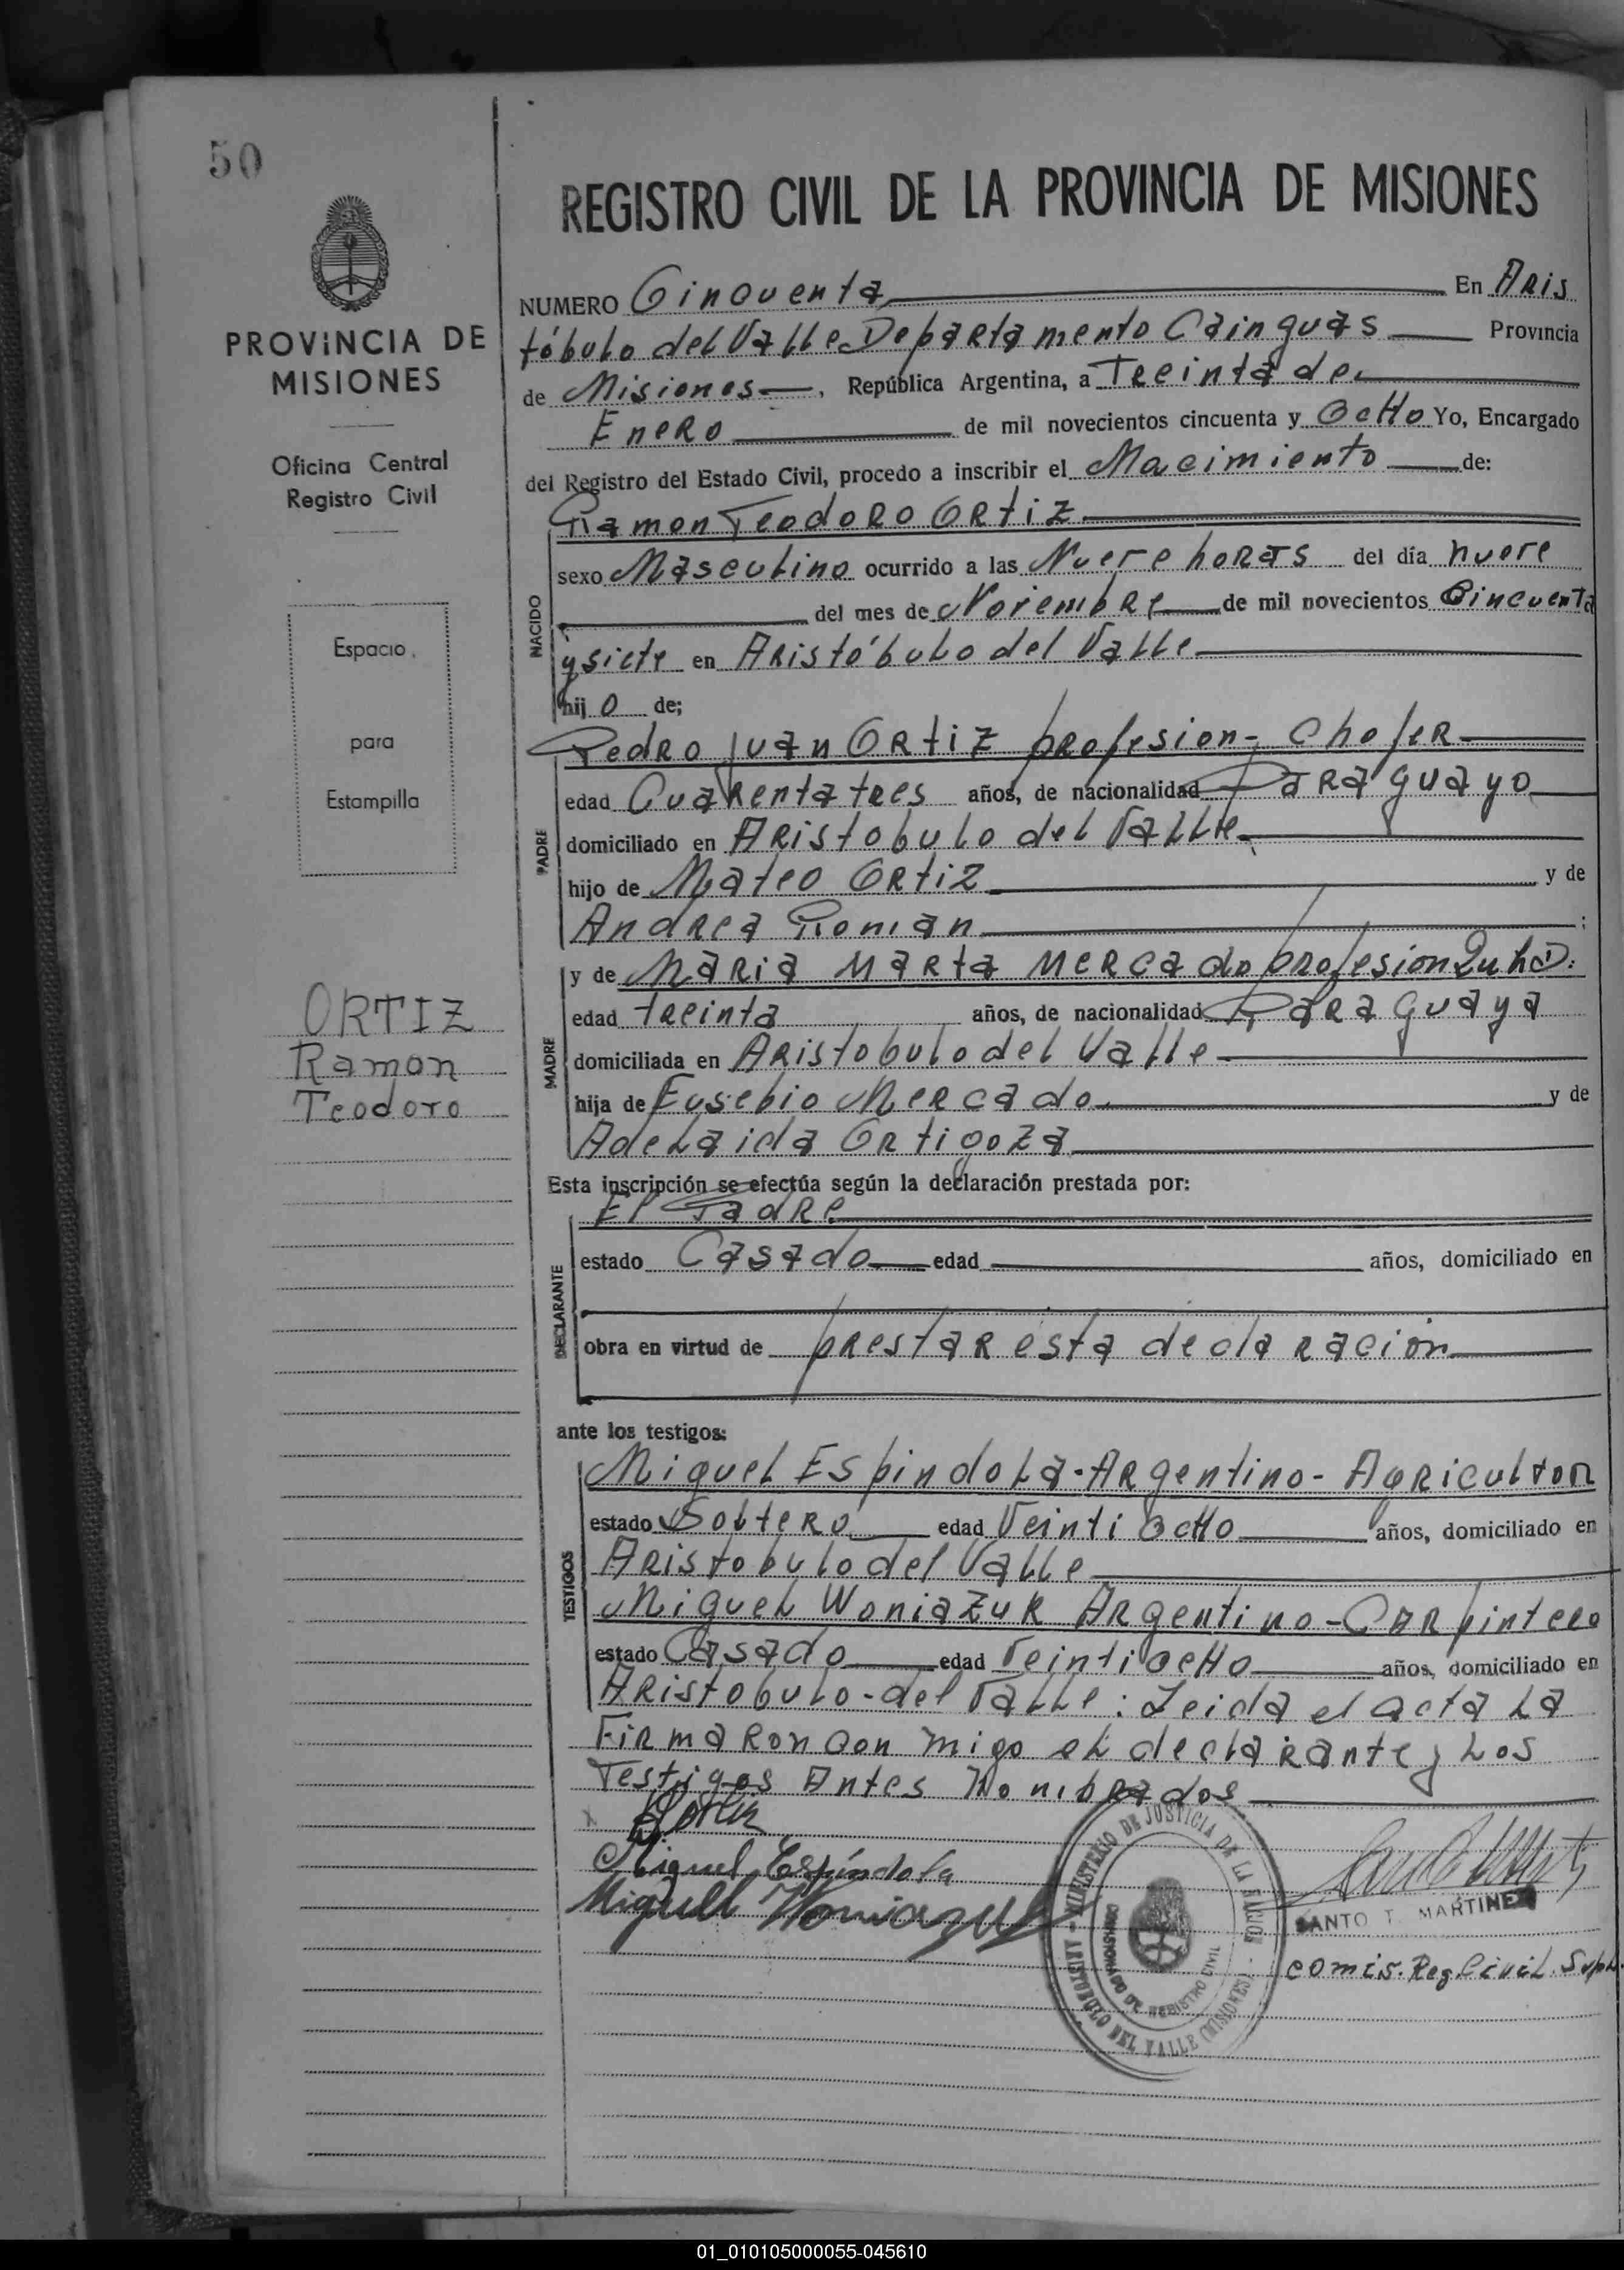 50
PROVINCIA DE
MISIONES
Oficina Central
Registro Civil
Espacio
para
Estampilla
ORTIZ
Ramon
Teodoro
REGISTRO CIVIL DE LA PROVINCIA DE MISIONES
NUMERO Cincuenta En Aris
tóbulo del Valle Departamento Cainguas Provincia
de Misiones, República Argentina, a Treinta de
Enero de mil novecientos cincuenta y Ocho Yo, Encargado
del Registro del Estado Civil, procedo a inscribir el Nacimiento de:
Ramon Teodoro Ortiz
NACIDO
sexo Masculino ocurrido a las Nueve horas del día nueve
del mes de Noviembre de mil novecientos Cincuenta
y siete en Aristóbulo del Valle
hijo de;
Pedro Juan Ortiz profesion - Chofer
PADRE
edad Cuarenta tres años, de nacionalidad Paraguayo
domiciliado en Aristobulo del Valle
hijo de Mateo Ortiz y de
Andrea Roman ;
MADRE
y de Maria Marta Mercado profesion Qu h D:
edad treinta años, de nacionalidad Paraguaya
domiciliada en Aristobulo del Valle
hija de Eusebio Mercado y de
Adelaida Ortigoza
Esta inscripción se efectúa según la declaración prestada por:
El Padre
DECLARANTE
estado Casado edad años, domiciliado en
obra en virtud de prestar esta declaración
ante los testigos:
TESTIGOS
Miguel Espindola - Argentino - Agricultor
estado Soltero edad Veinti Ocho años, domiciliado en
Aristobulo del Valle
Miguel Woniazuk Argentino - Carpintero
estado Casado edad Veintiocho años, domiciliado en
Aristobulo - del Valle : Leida el acta la
Firmaron con migo el declarante y los
Testigos Antes Nombrados
x Ortiz
Miguel Espíndola
Miguel Woniazuk
MINISTERIO DE JUSTICIA DE LA NACION
ARISTOBULO DEL VALLE (MISIONES)
COMISIONADO DE REGISTRO CIVIL
SANTO T. MARTINEZ
comis. Reg. Civil. Supl.
01_010105000055-045610